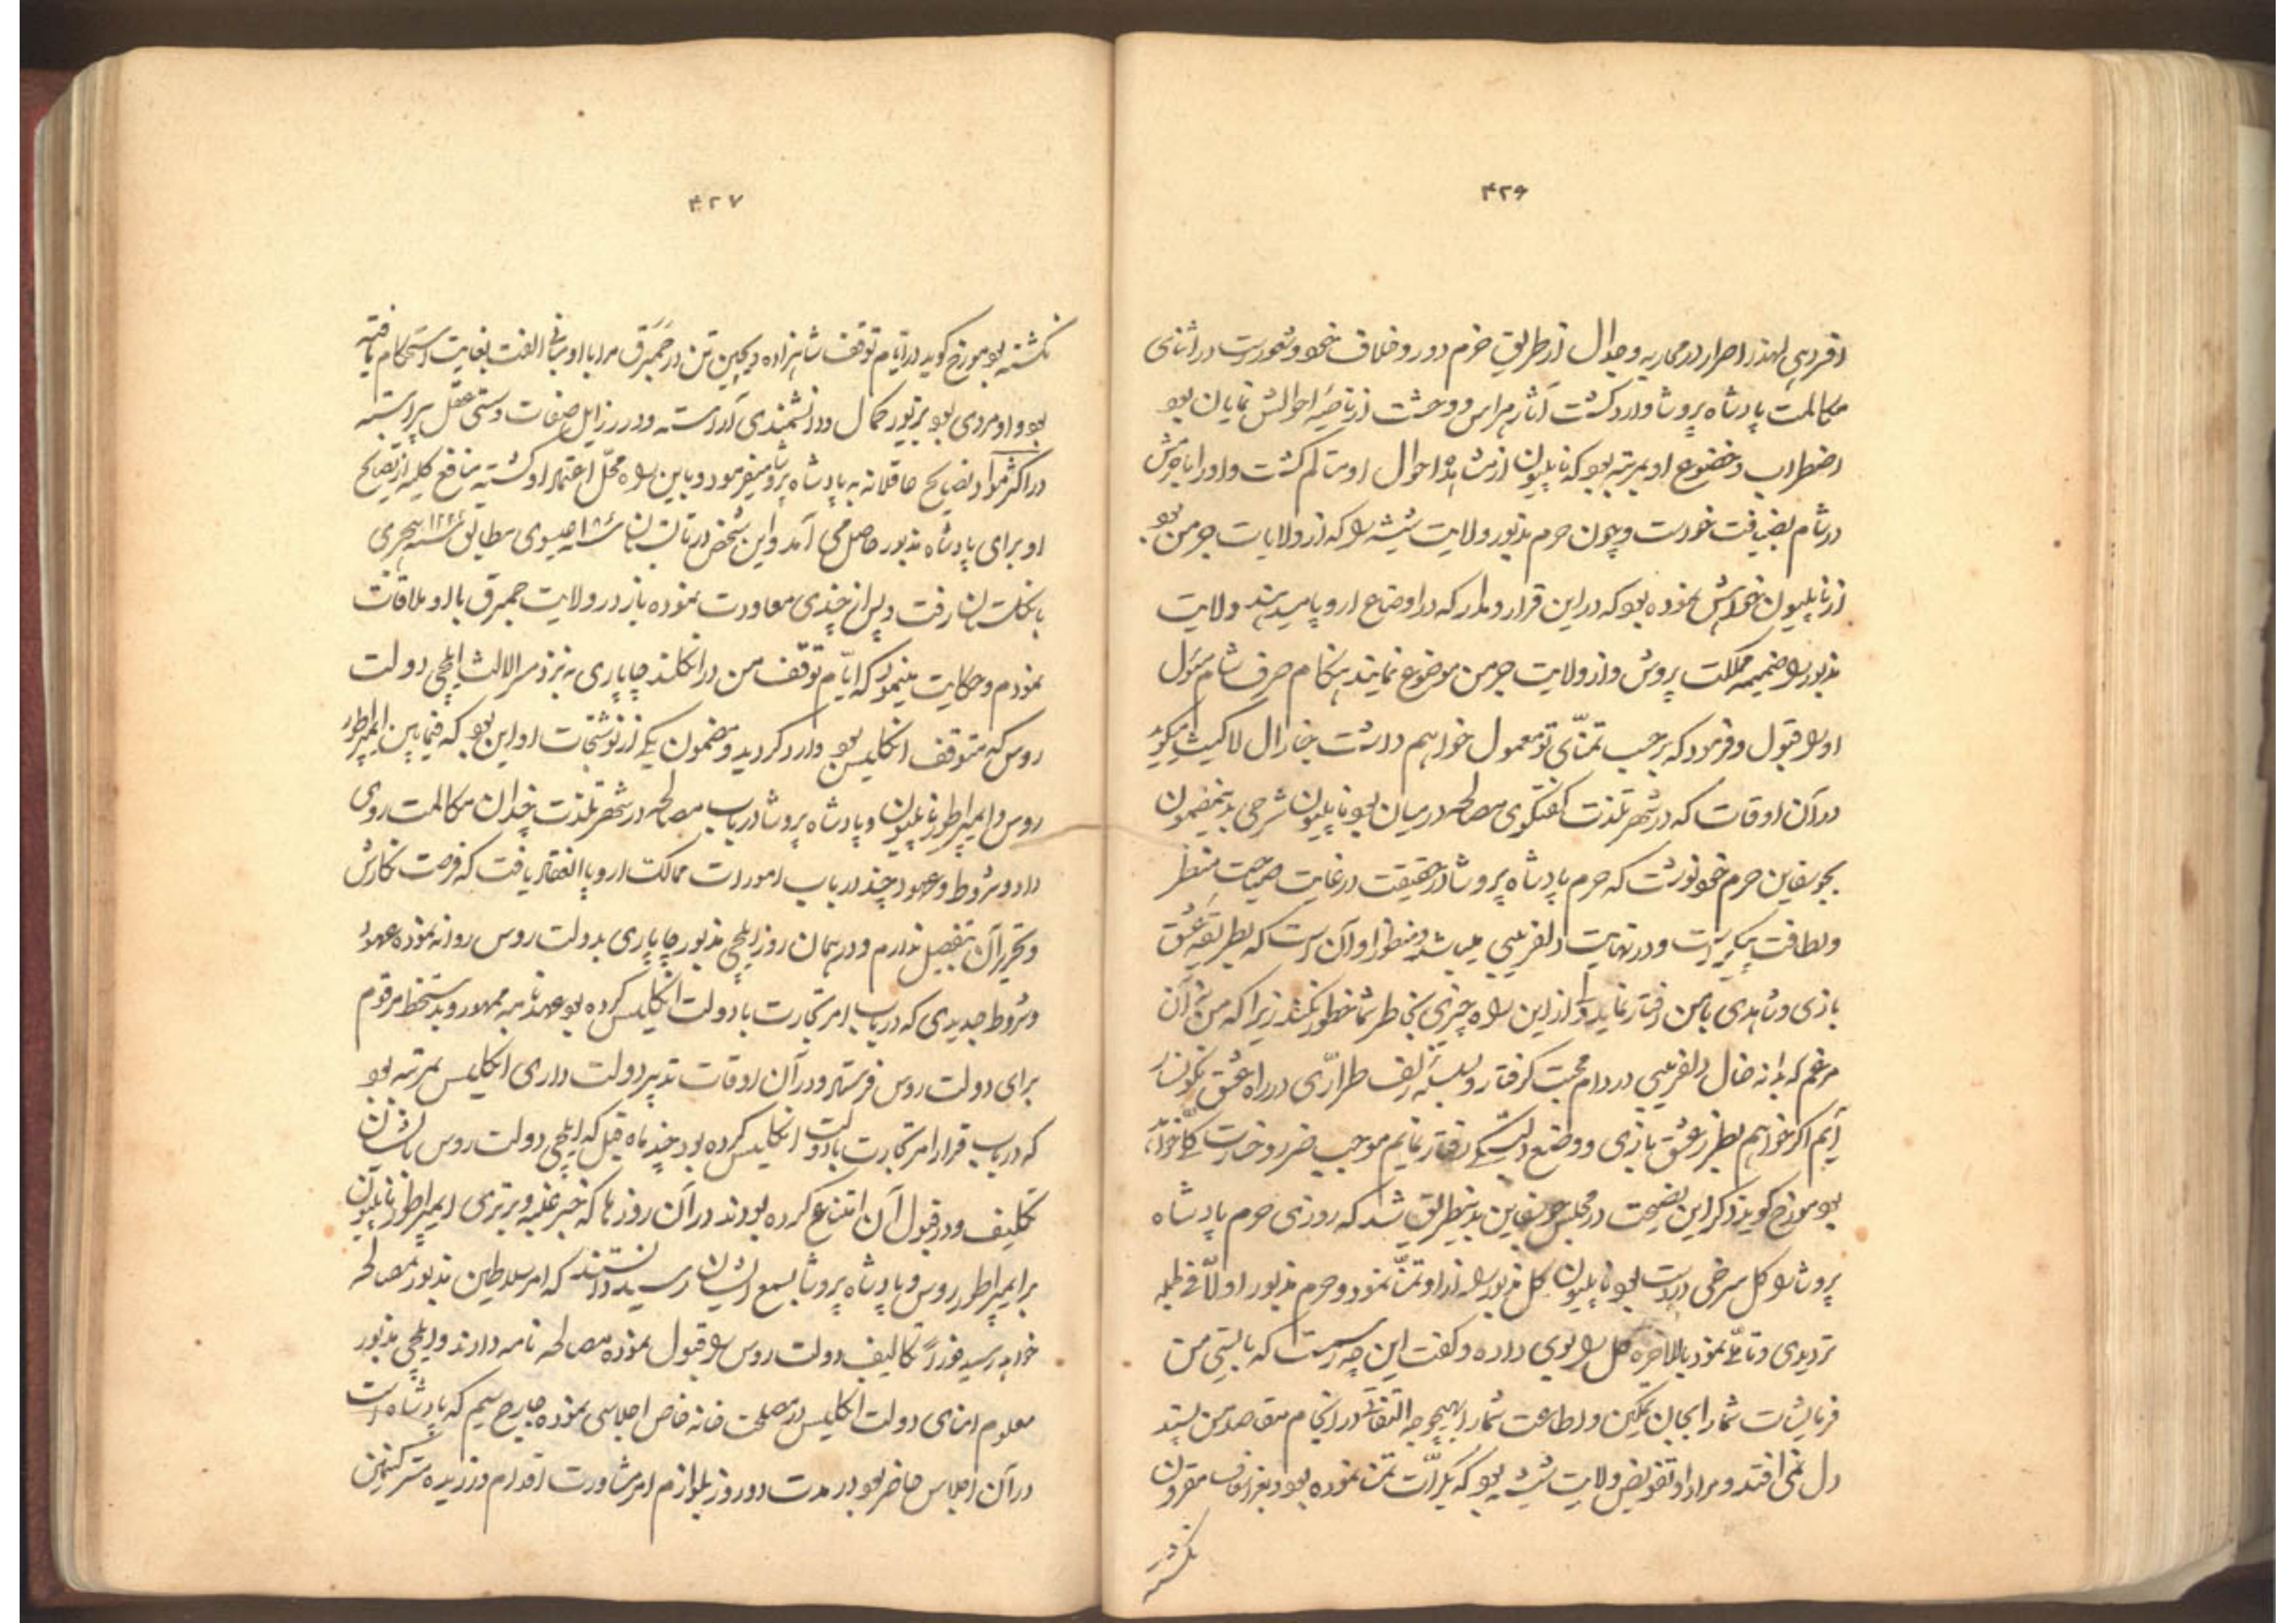 ۴۲۶
افزودی لهذا اصرار در محاربه و جدال از طریق حزم دور و خلاف نحو و شعور است در اثنای
مکالمت پادشاه پروشا وارد گشت آثار هراس و وحشت از ناصیهٔ احوالش نمایان بود
اضطراب و خضوع او بمرتبه بود که ناپلیون از مشاهده احوال او متالم گشت و او را با حرمش
در شام بضیافت خواست و چون حرم مذبور ولایت شیشه را که از ولایات جرمن بود
از ناپلیون خواهش نموده بود که در این قرار و مدار که در اوضاع اروپا میدهند ولایت
مذبور را ضمیمه مملکت پروش و از ولایت جرمن موضوع نمایند هنگام صرف شام مسئول
او را قبول و فرمود که بر حسب تمنّای تو معمول خواهم داشت جنارال لاکیث میگوید
در آن اوقات که در شهر تلذت گفتگوی مصالحه در میان بود ناپلیون شرحی بدینمضمون
بجوسفاین حرم خود نوشت که حرم پادشاه پروشا در حقیقت در غایت صباحت منظر
و لطافت پیکر است و در نهایت دلفریبی میباشد و منظور او آن است که بطریقه عشق
بازی و شاهدی با من رفتار نماید و از این راه چیزی بخاطر شما خطور نکند زیرا که من نه آن
مرغم که بدانه خال دلفریبی در دام محبت گرفتار و بسته زلف طرّاری در راه عشق نگونسار
آیم اگر خواهم بطرز عشق بازی و وضع دلبستگی رفتار نمایم موجب ضرر و خسارت کلّی خواهد
بود مورخ گوید ذکر این نصیحت در مجلس جوسفاین بدینطریق شد که روزی حرم پادشاه
پروشا را گل سرخی در دست بود ناپلیون گل مذبور را از او تمنّا نمود و حرم مذبور اولاً فی الجمله
تردیدی و تأملی نمود بالاخره گل را بوی داده و گفت این چه رسمیست که بایستی من
فرمایشات شما را بجان تمکین و اطاعت شما را بهیچوجه التفاتی در انجام مقاصد من پسند
دل نمی افتد و مراد او تفویض ولایت شیشه بود که بکرّات تمنا نموده بود و بعز اسعاف مقرون
نگشته
۴۲۷
نگشته بود مورخ گوید در ایام توقف شاهزاده ویکین تن در جمبرق مرا با او مبانی الفت بغایت استحکام یافته
بود و او مردی بود بزیور کمال و دانشمندی آراسته و در رزایل صفات و سستی عقل پیراسته
در اکثر مواد نصایح عاقلانه به پادشاه پروشا میفرمود و باین راه محلّ اعتماد او گشته منافع کلیه از نصایح
او برای پادشاه مذبور حاصل می آمد و این شخص در تابستان سنه ۱۸۰۷ عیسوی مطابق سنه ۱۲۲۲ هجری
بانگلستان رفت و پس از چندی معاودت نموده باز در ولایت جمبرق با او ملاقات
نمودم و حکایت مینمود که ایّام توقّف من در انگلند چاپاری به نزد سر الالث ایلچی دولت
روس که متوقف انگلیس بود وارد گردید و مضمون یکی از نوشتجات او این بود که فیما بین ایمپراطور
روس و ایمپراطور ناپلیون و پادشاه پروشا در باب مصالحه در شهر تلذت چندان مکالمت روی
داد و شروط و عهود چند در باب امورات ممالک اروپا انعقاد یافت که فرصت نگارش
و تحریر آن بتفصیل ندارم و در همان روز ایلچی مذبور چاپاری بدولت روس روانه نموده عهود
و شروط جدیدی که در باب امر تجارت با دولت انگلیس کرده بود عهدنامه ممهور و بدستخط مرقوم
برای دولت روس فرستاد و در آن اوقات تدبیر دولت داری انگلیس بمرتبه بود
که در باب قرار امر تجارت با دولت انگلیس کرده بود چند ماه قبل که ایلچی دولت روس باشان
تکلیف و در قبول آن امتناع کرده بودند در آن روزها که خبر غلبه و برتری ایمپراطور ناپلیون
بر ایمپراطور روس و پادشاه پروشا بسمع ایشان رسید دانستند که امر سلاطین مذبور بمصالحه
خواهد رسید فوراً تکالیف دولت روس را قبول نموده مصالحه نامه دادند و ایلچی مذبور
معلوم امنای دولت انگلیس در مصلحت خانه خاص اجلاسی نموده جارج سیم که پادشاه است
در آن اجلاس حاضر بود در مدت دو روز بلوازم امر مشاورت اقدام ورزیده مستر کنین